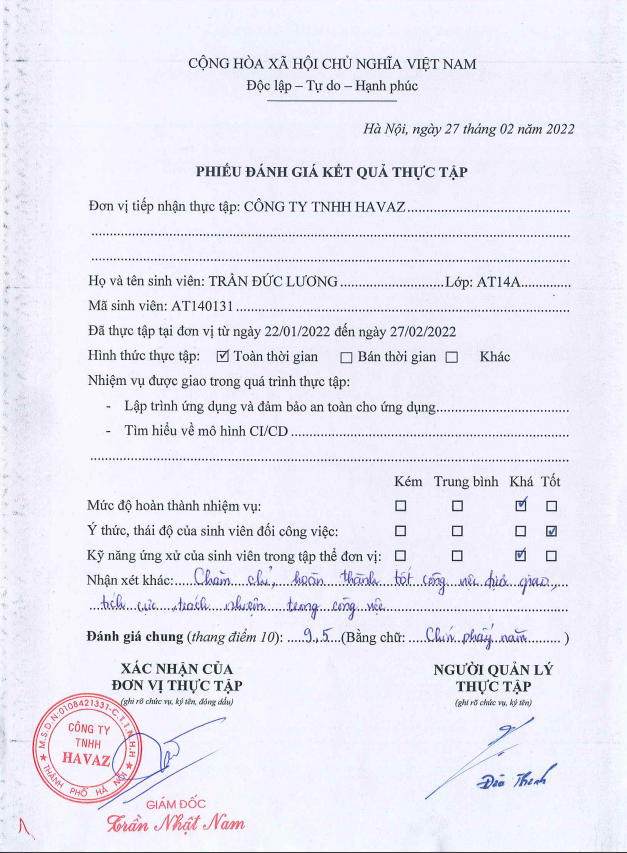 CỘNG HÒA XÃ HỘI CHỦ NGHĨA VIỆT NAM
Độc lập – Tự do – Hạnh phúc
Hà Nội, ngày 27 tháng 02 năm 2022
PHIẾU ĐÁNH GIÁ KẾT QUẢ THỰC TẬP
Đơn vị tiếp nhận thực tập: CÔNG TY TNHH HAVAZ
Họ và tên sinh viên: TRẦN ĐỨC LƯƠNG Lớp: AT14A
Mã sinh viên: AT140131
Đã thực tập tại đơn vị từ ngày 22/01/2022 đến ngày 27/02/2022
Hình thức thực tập: ☑ Toàn thời gian ☐ Bán thời gian ☐ Khác
Nhiệm vụ được giao trong quá trình thực tập:
- Lập trình ứng dụng và đảm bảo an toàn cho ứng dụng
- Tìm hiểu về mô hình CI/CD
Kém Trung bình Khá Tốt
Mức độ hoàn thành nhiệm vụ: ☐ ☐ ☑ ☐
Ý thức, thái độ của sinh viên đối công việc: ☐ ☐ ☐ ☑
Kỹ năng ứng xử của sinh viên trong tập thể đơn vị: ☐ ☐ ☑ ☐
Nhận xét khác: Chăm chỉ, hoàn thành tốt công việc được giao,
tích cực, trách nhiệm trong công việc
Đánh giá chung (thang điểm 10): 9,5 (Bằng chữ: Chín phẩy năm )
XÁC NHẬN CỦA
ĐƠN VỊ THỰC TẬP
(ghi rõ chức vụ, ký tên, đóng dấu)
NGƯỜI QUẢN LÝ
THỰC TẬP
(ghi rõ chức vụ, ký tên)
M.S.D.N:0108421331-C.T.T.N.H.H
CÔNG TY
TNHH
HAVAZ
THÀNH PHỐ HÀ NỘI
GIÁM ĐỐC
Trần Nhật Nam